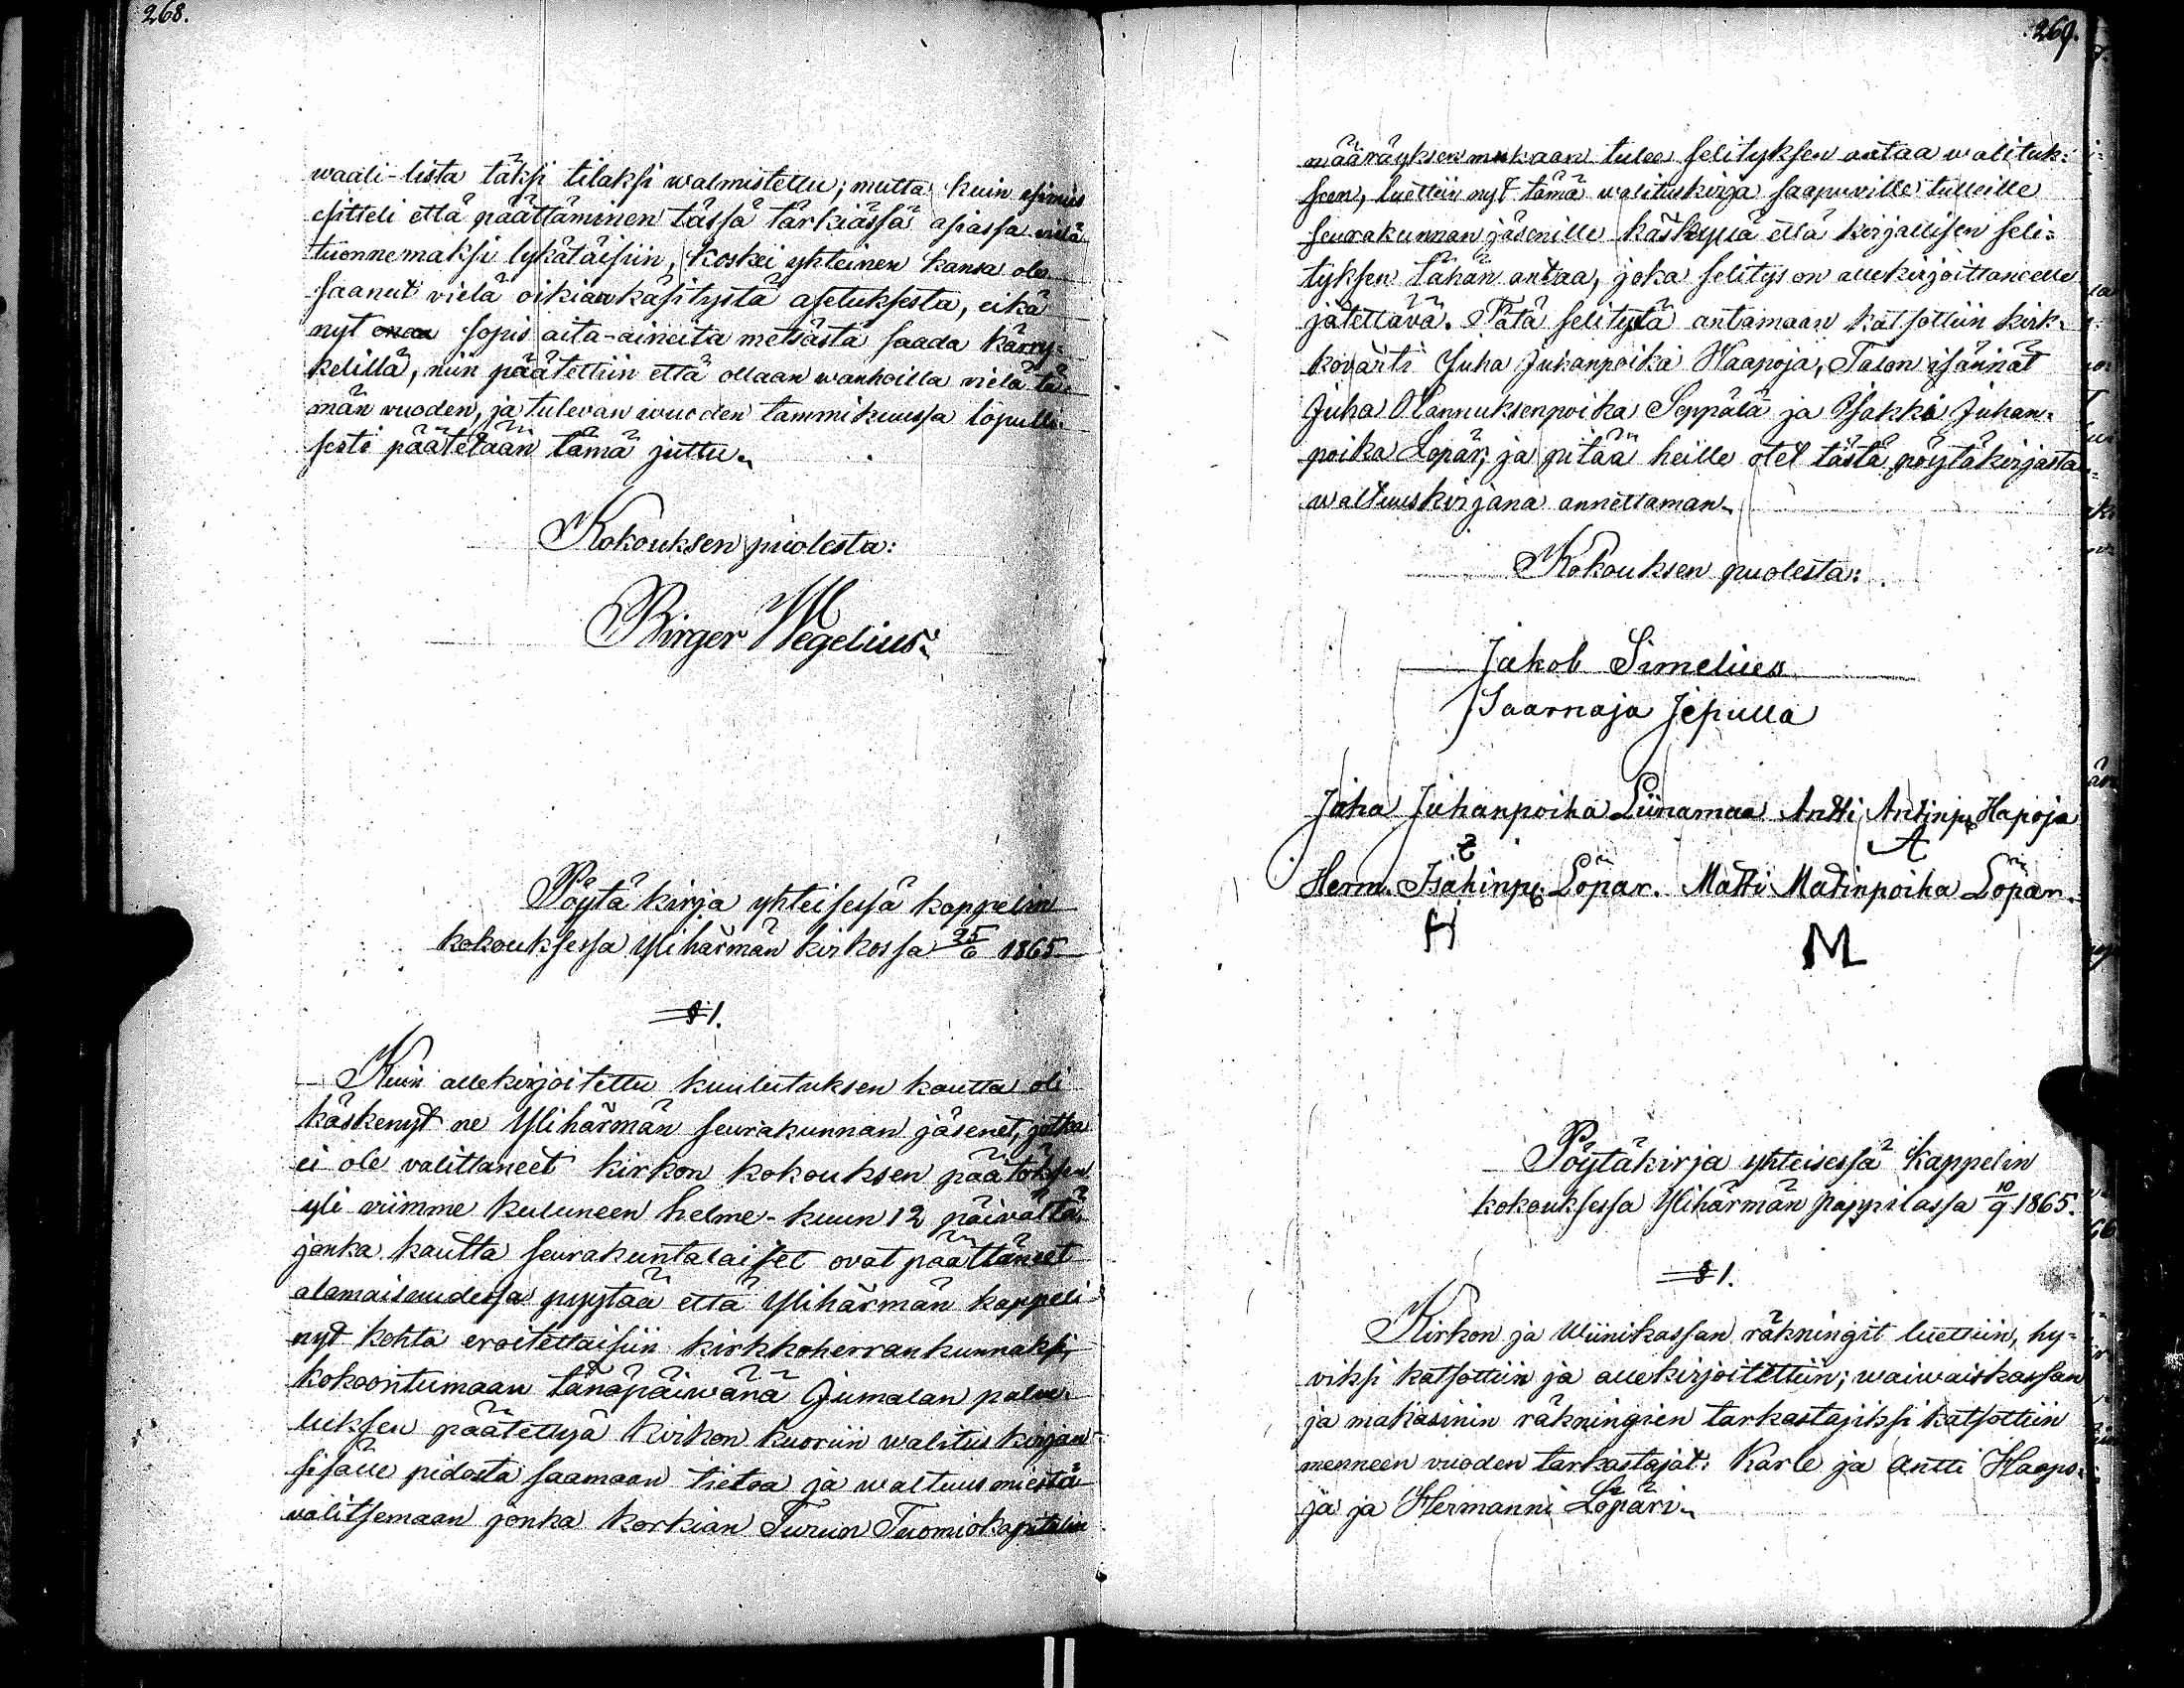 268.
waali-lista täksi tilaksi walmistettu; mutta kuin esimies
esitteli että päättäminen tässä tärkiässä asiassa vielä
tuonnemaksi lykätäisiin, koskei yhteinen kansa ole
saanut vielä oikian käsitystä asetuksesta, eikä
nyt enää sopis aita-aineita metsästä saada kärry-
kelillä, niin päätettiin että ollaan wanhoilla vielä tä-
män vuoden, ja tulevan wuoden tammikuussa lopulli-
sesti päätetään tämä juttu.
Kokouksen puolesta:
Birger Wegelius.
Pöytäkirja yhteisessä kappelin
kokouksessa Ylihärmän kirkossa 25/6 1865.
§ 1.
Kuin allekirjoitettu kuulutuksen kautta oli
käskenyt ne Ylihärmän seurakunnan jäsenet, jotka
ei ole valittaneet kirkon kokouksen päätöksen
yli viimme kuluneen helme-kuun 12 päivältä
jonka kautta seurakuntalaiset ovat päättäneet
alamaisuudessa pyytää että Ylihärmän kappeli
nyt kohta eroitettaisiin kirkkoherrankunnaksi,
kokoontumaan tänäpäiwänä Jumalan palve-
luksen päätettyä kirkon kuoriin walitus kirjan
sisälle pidosta saamaan tietoa ja waltuusmiestä
valitsemaan jonka korkian Turun Tuomiokapitelin
269.
määräyksen mukaan tulee selityksen antaa walituk-
seen, luettiin nyt tämä walituskirja saapuville tulleille
seurakunnan jäsenille käskyllä että kirjallisen seli-
tyksen tähän antaa, joka selitys on allekirjoittaneelle
jätettävä. Tätä selitystä antamaan katsottiin kirk-
kovärti Juha Juhanpoika Haapoja, Talon isännät
Juha Hannuksenpoika Seppälä ja Isakki Juhan-
poika Löpär; ja pitää heille otet tästä pöytäkirjasta
waltuuskirjana annettaman.
Kokouksen puolesta:
Jakob Simelius
Saarnaja Jepulla
Juha Juhanpoika Liinamaa Antti Antinp. Hapoja
A
Herm. Isakinp. Löpär. Matti Matinpoika Löpär.
H M
Pöytäkirja yhteisessä Kappelin
kokouksessa Ylihärmän pappilassa 10/9 1865.
§ 1.
Kirkon ja Wiinikassan räkningit luettiin, hy-
viksi katsottiin ja allekirjoitettiin; waiwaiskassan
ja makasinin räkningien tarkastajiksi katsottiin
menneen vuoden tarkastajat: Karle ja Antti Haapo-
ja ja Hermanni Löpäri.